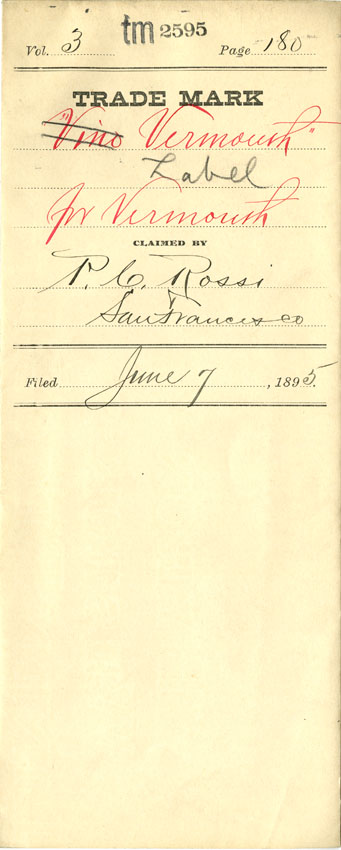 tm 2595
Vol. 3 Page 180
TRADE MARK
"Vino Vermouth"
Label
for Vermouth
CLAIMED BY
P. C. Rossi
San Francisco
Filed June 7, 1895.